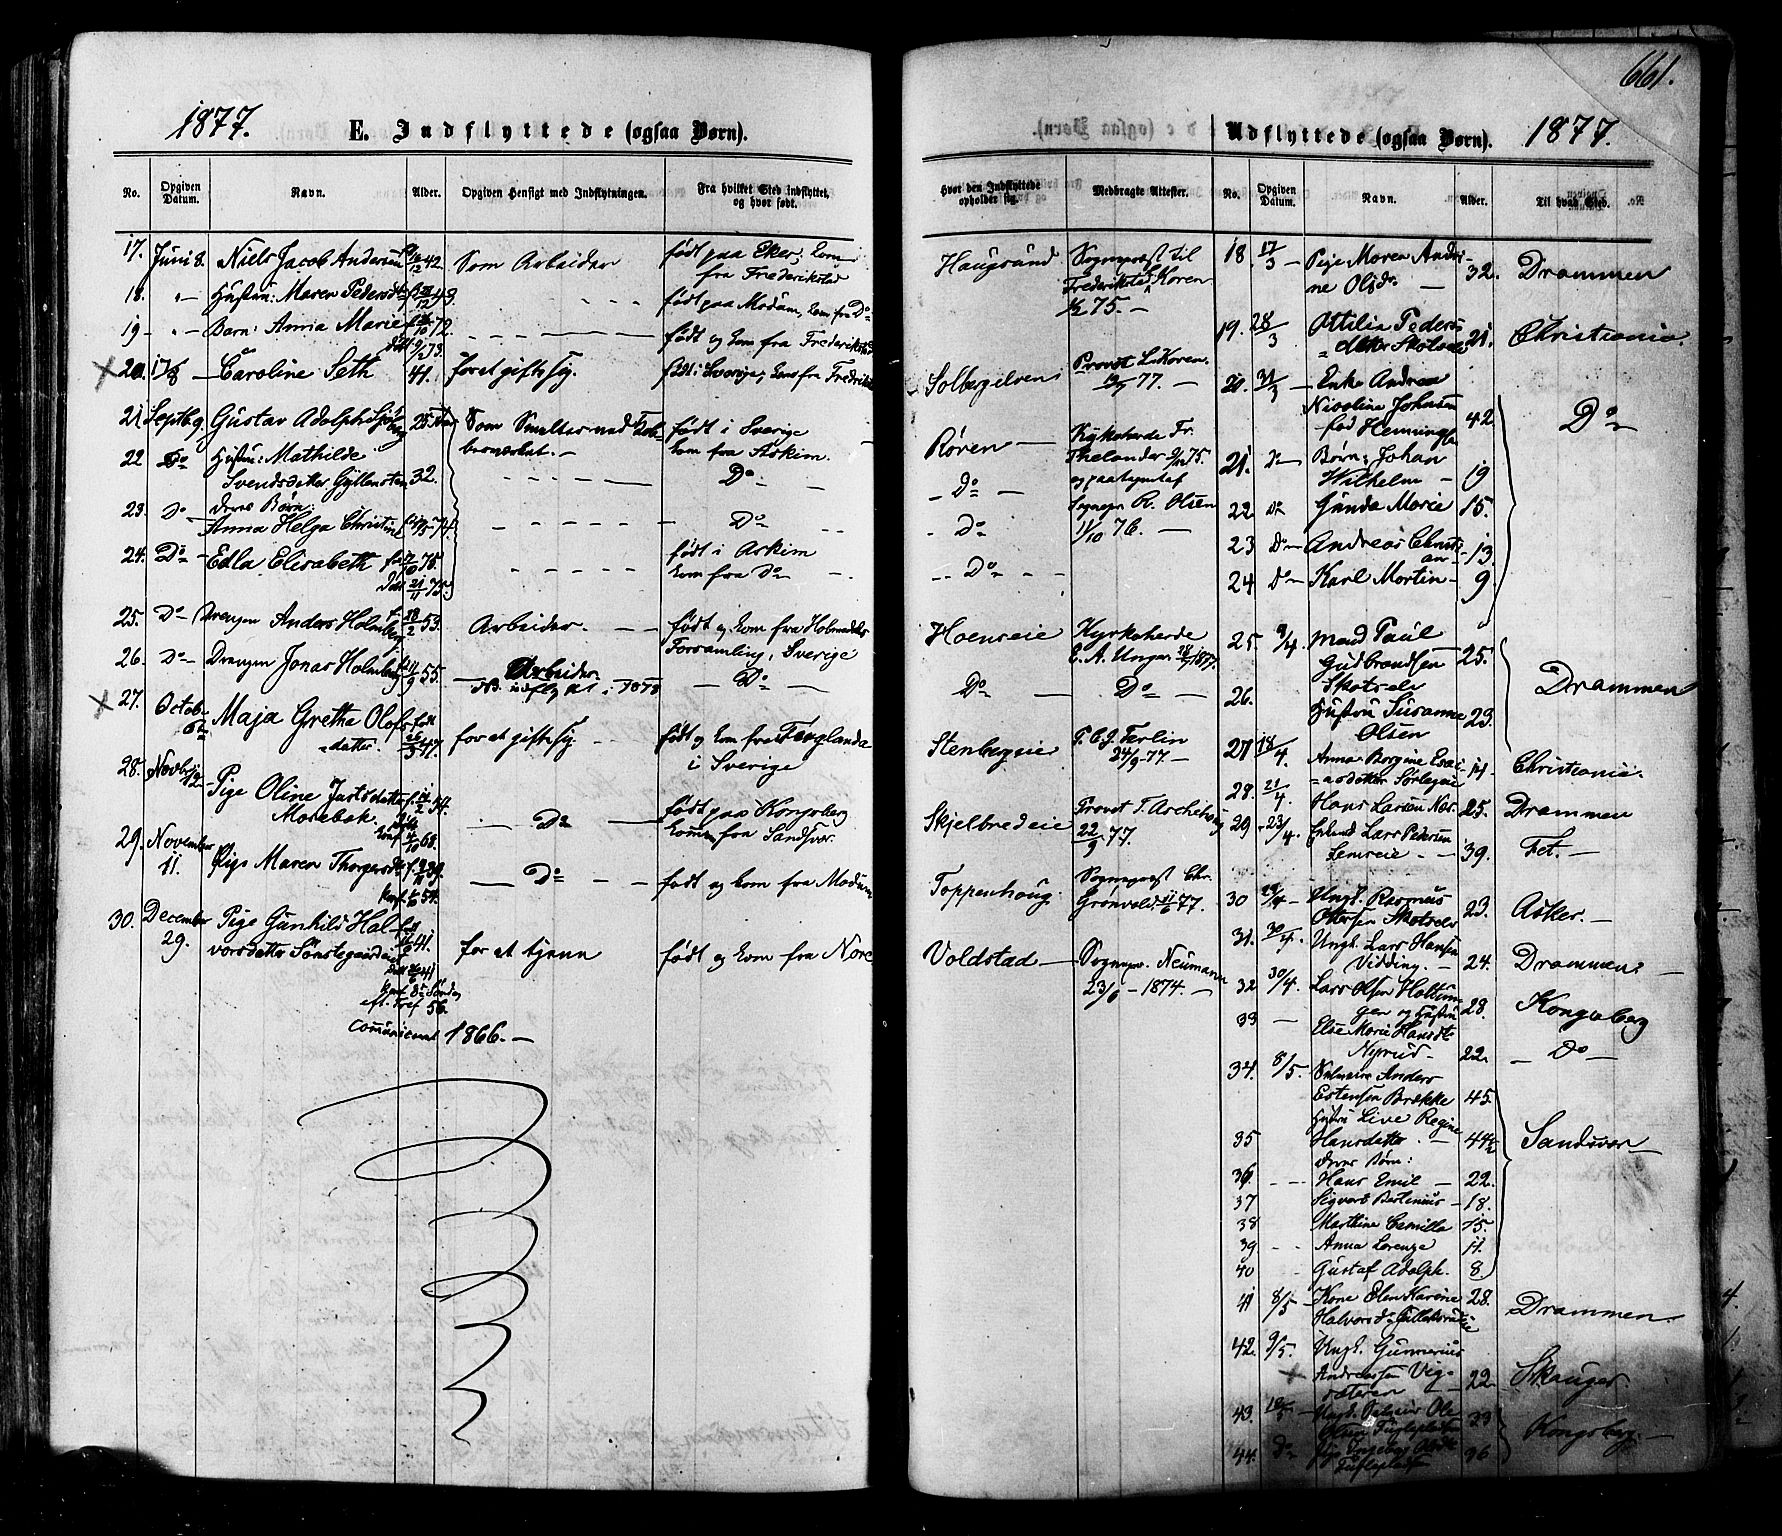 661.
1877.
E. Indflyttede (ogsaa Børn).
No.
Opgiven Datum.
Navn.
Alder.
Opgiven Hensigt med Indflytningen.
Fra hvilket Sted indflyttet, og hvor født.
17. Juni 8. Niels Jacob Andersen 42. Som Arbeider født paa Eker, kom
fra Frederikstad
18. " Hustru: Maren Pedersdtr 43. født paa Modum, kom fra Do
19 " Barn: Anna Marie 72. født og kom fra Frederikstad
døbt 73.
20. 17/8 Caroline Seth 41. for at gifte sig. født i Sverige, kom fra
21 Septb 9. Gustav Adolph 25 Aar Som Smelter ved født i Sverige
kom fra Askim.
22 Do Hustru: Mathilde
Svendsdatter Gyllensten 32. Do
23. Do deres Børn:
Anna Helga Christine 74. Do
24. Do Edla Elisabeth 75. født i Askim
døbt 21/11 75. kom fra Do
25. Do Drengen Anders Holmberg 28/2 53. Arbeider. født og kom fra
Forsamling, Sverige
26. Do Drengen Jonas Holmberg 11/9 55. Arbeider Do
27. Octob. Maja Gretha Olofs- født
datter. 26/3 47. for at gifte sig født og kom fra
i Sverige
28. Novbr. Pige Oline Justsdatter 54. Do født paa Kongsberg
Morebak. 68. kommen fra Sandsvær
29. November
11. Pige Maren 39. Do født og kom fra Modum
Konf. 54.
30. December
29. Pige Gunhild Hal-
vorsdatter 41. for at tjene født og kom fra Nore
56.
Communicent 1866.
Hvor den Indflyttede opholder sig.
Medbragte Attester.
Haugsund Sognepræst til
Koren
75.
Solbergelven Provst L. Koren
77.
Røren Kyrkoherde Fr.
Thelander 75.
Do og paategnet af
Sognepr. R. Olsen
Do 11/10 76.
Do
Hoenseie Kyrkoherde
E. A. Unger 28/7 1877.
Do Do
Stenbergeie Ferlin
24/9 77.
Skjelbredeie Provst T. Archehoug
22/9 77
Toppenhoug. Sognepræst Chr.
Grønvold 11/6 77.
Voldstad Sognepr. Neumann
23/6 1874.
Udflyttede (ogsaa Børn).
1877.
No.
Opgiven Datum.
Navn.
Alder.
Til hvad Sted.
18. 17/3 Pige Maren Andri-
ne Olsdr 32. Drammen
19. 28/3 Attilia Peders
datter 21. Christiania.
20. 31/3 Enke Andrea
Nicoline Johnsen
fød Henningsen 42 Do
21. Do Børn: Johan
Wilhelm 19
22 Do Gunda Marie 15.
23 Do Andreas Christi-
an 13.
24 Do Karl Martin 9
25 9/4 Mand Paul
Gudbrandsen 25. Drammen
26. Hustru Susanne 29.
Olsen
27 18/4 Anna Bergine Esai-
asdatter 14. Christiania.
28. 21/4. Hans Larsen 25. Drammen
29 23/4. Lars Pedersen
39. Fet.
30 29/4 Ungk. Rasmus
23. Asker.
31. 30/4 Ungk. Lars Hansen
Vidding. 24. Drammen
32 30/4. Lars Olsen
og Hustru 28. Kongsberg
33 Else Marie Hansdtr
Nyrud 22. Do
34. 8/5. Anders
Estensen Brække 45.
35 Hustru Live Regine
Hansdatter 44½ Sandsvær
deres Børn:
36. Hans Emil 22.
37 Sigvart Bertinius 18.
38 Marthine Camilla 15.
39 Anna Lorenze 11.
40 Gustaf Adolph. 8.
41 8/5 Kone Elen Karine 28.
Drammen.
42. 9/5. Ungk. Gunnerius
Andreassen Vig-
sæteren 22 Skauger.
43. Ungk. Ole
Olsen 33 Kongsberg.
44. Do Pige Ingeborg 36